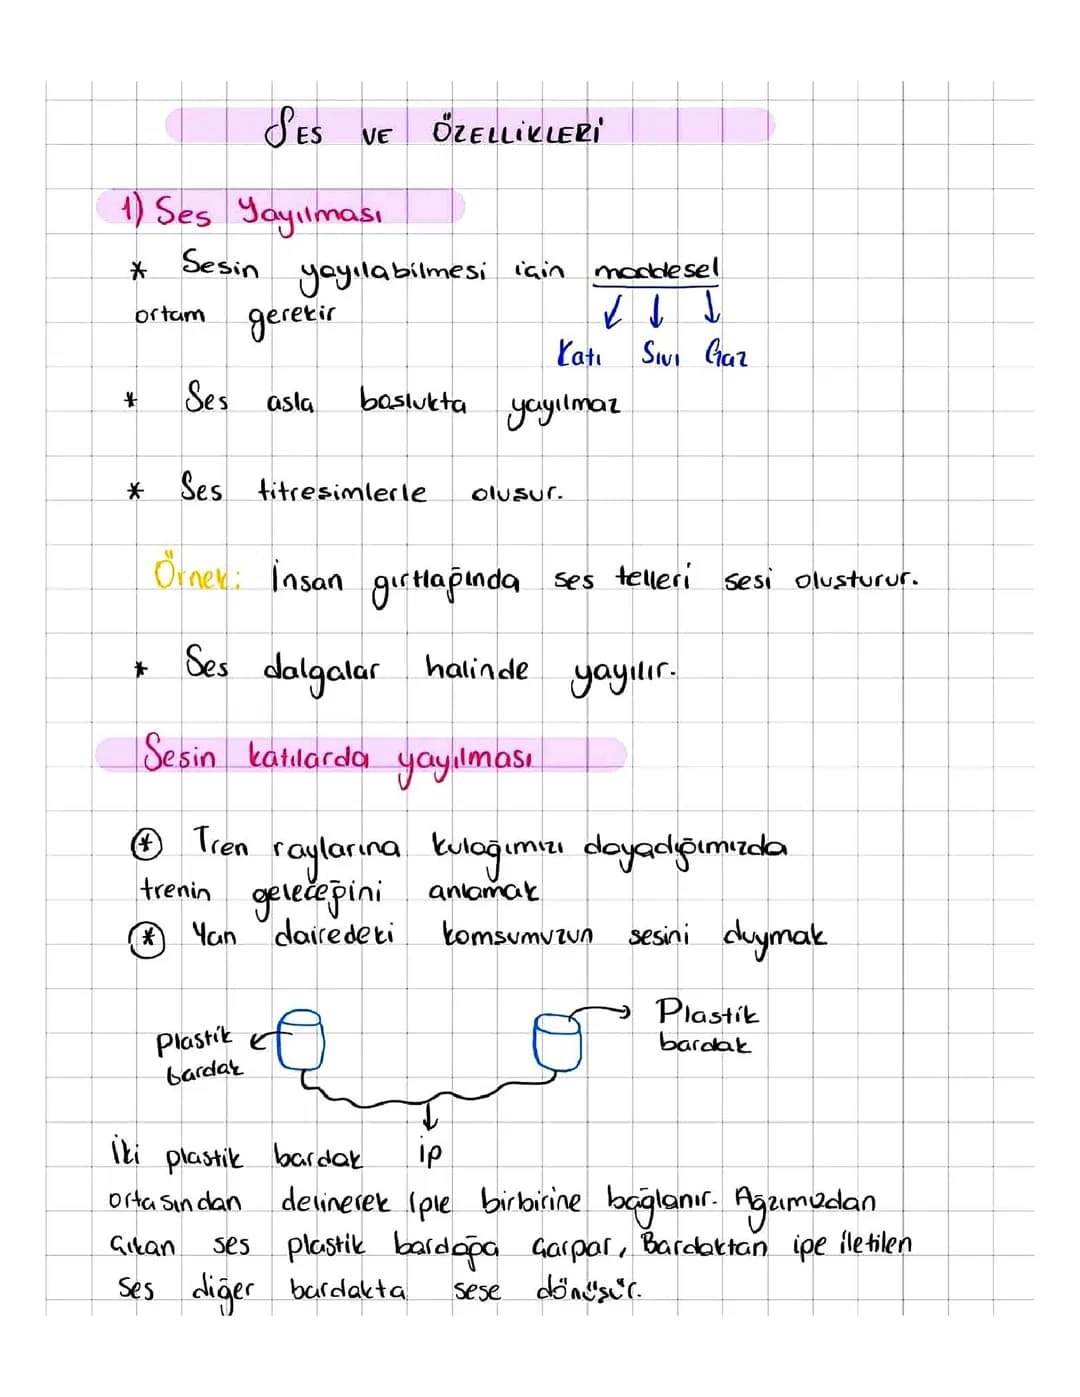 SES VE ÖZELLİKLERİ
1) Ses Yayılması
* Sesin yayılabilmesi için maddesel
ortam gerekir
Katı Sıvı Gaz
* Ses asla boslukta yayılmaz
* Ses titresimlerle olusur.
Örnek: İnsan gırtlağında ses telleri sesi olusturur.
* Ses dalgalar halinde yayılır.
Sesin katılarda yayılması
* Tren raylarına kulağımızı dayadığımızda
trenin geleceğini anlamak
* Yan dairedeki komsumuzun sesini duymak
Plastik bardak
Plastik bardak
ip
İki plastik bardak
ortasından delinerek iple birbirine bağlanır. Ağzımızdan
Çıkan ses plastik bardağa çarpar, Bardaktan ipe iletilen
ses diğer bardakta sese dönüsür.